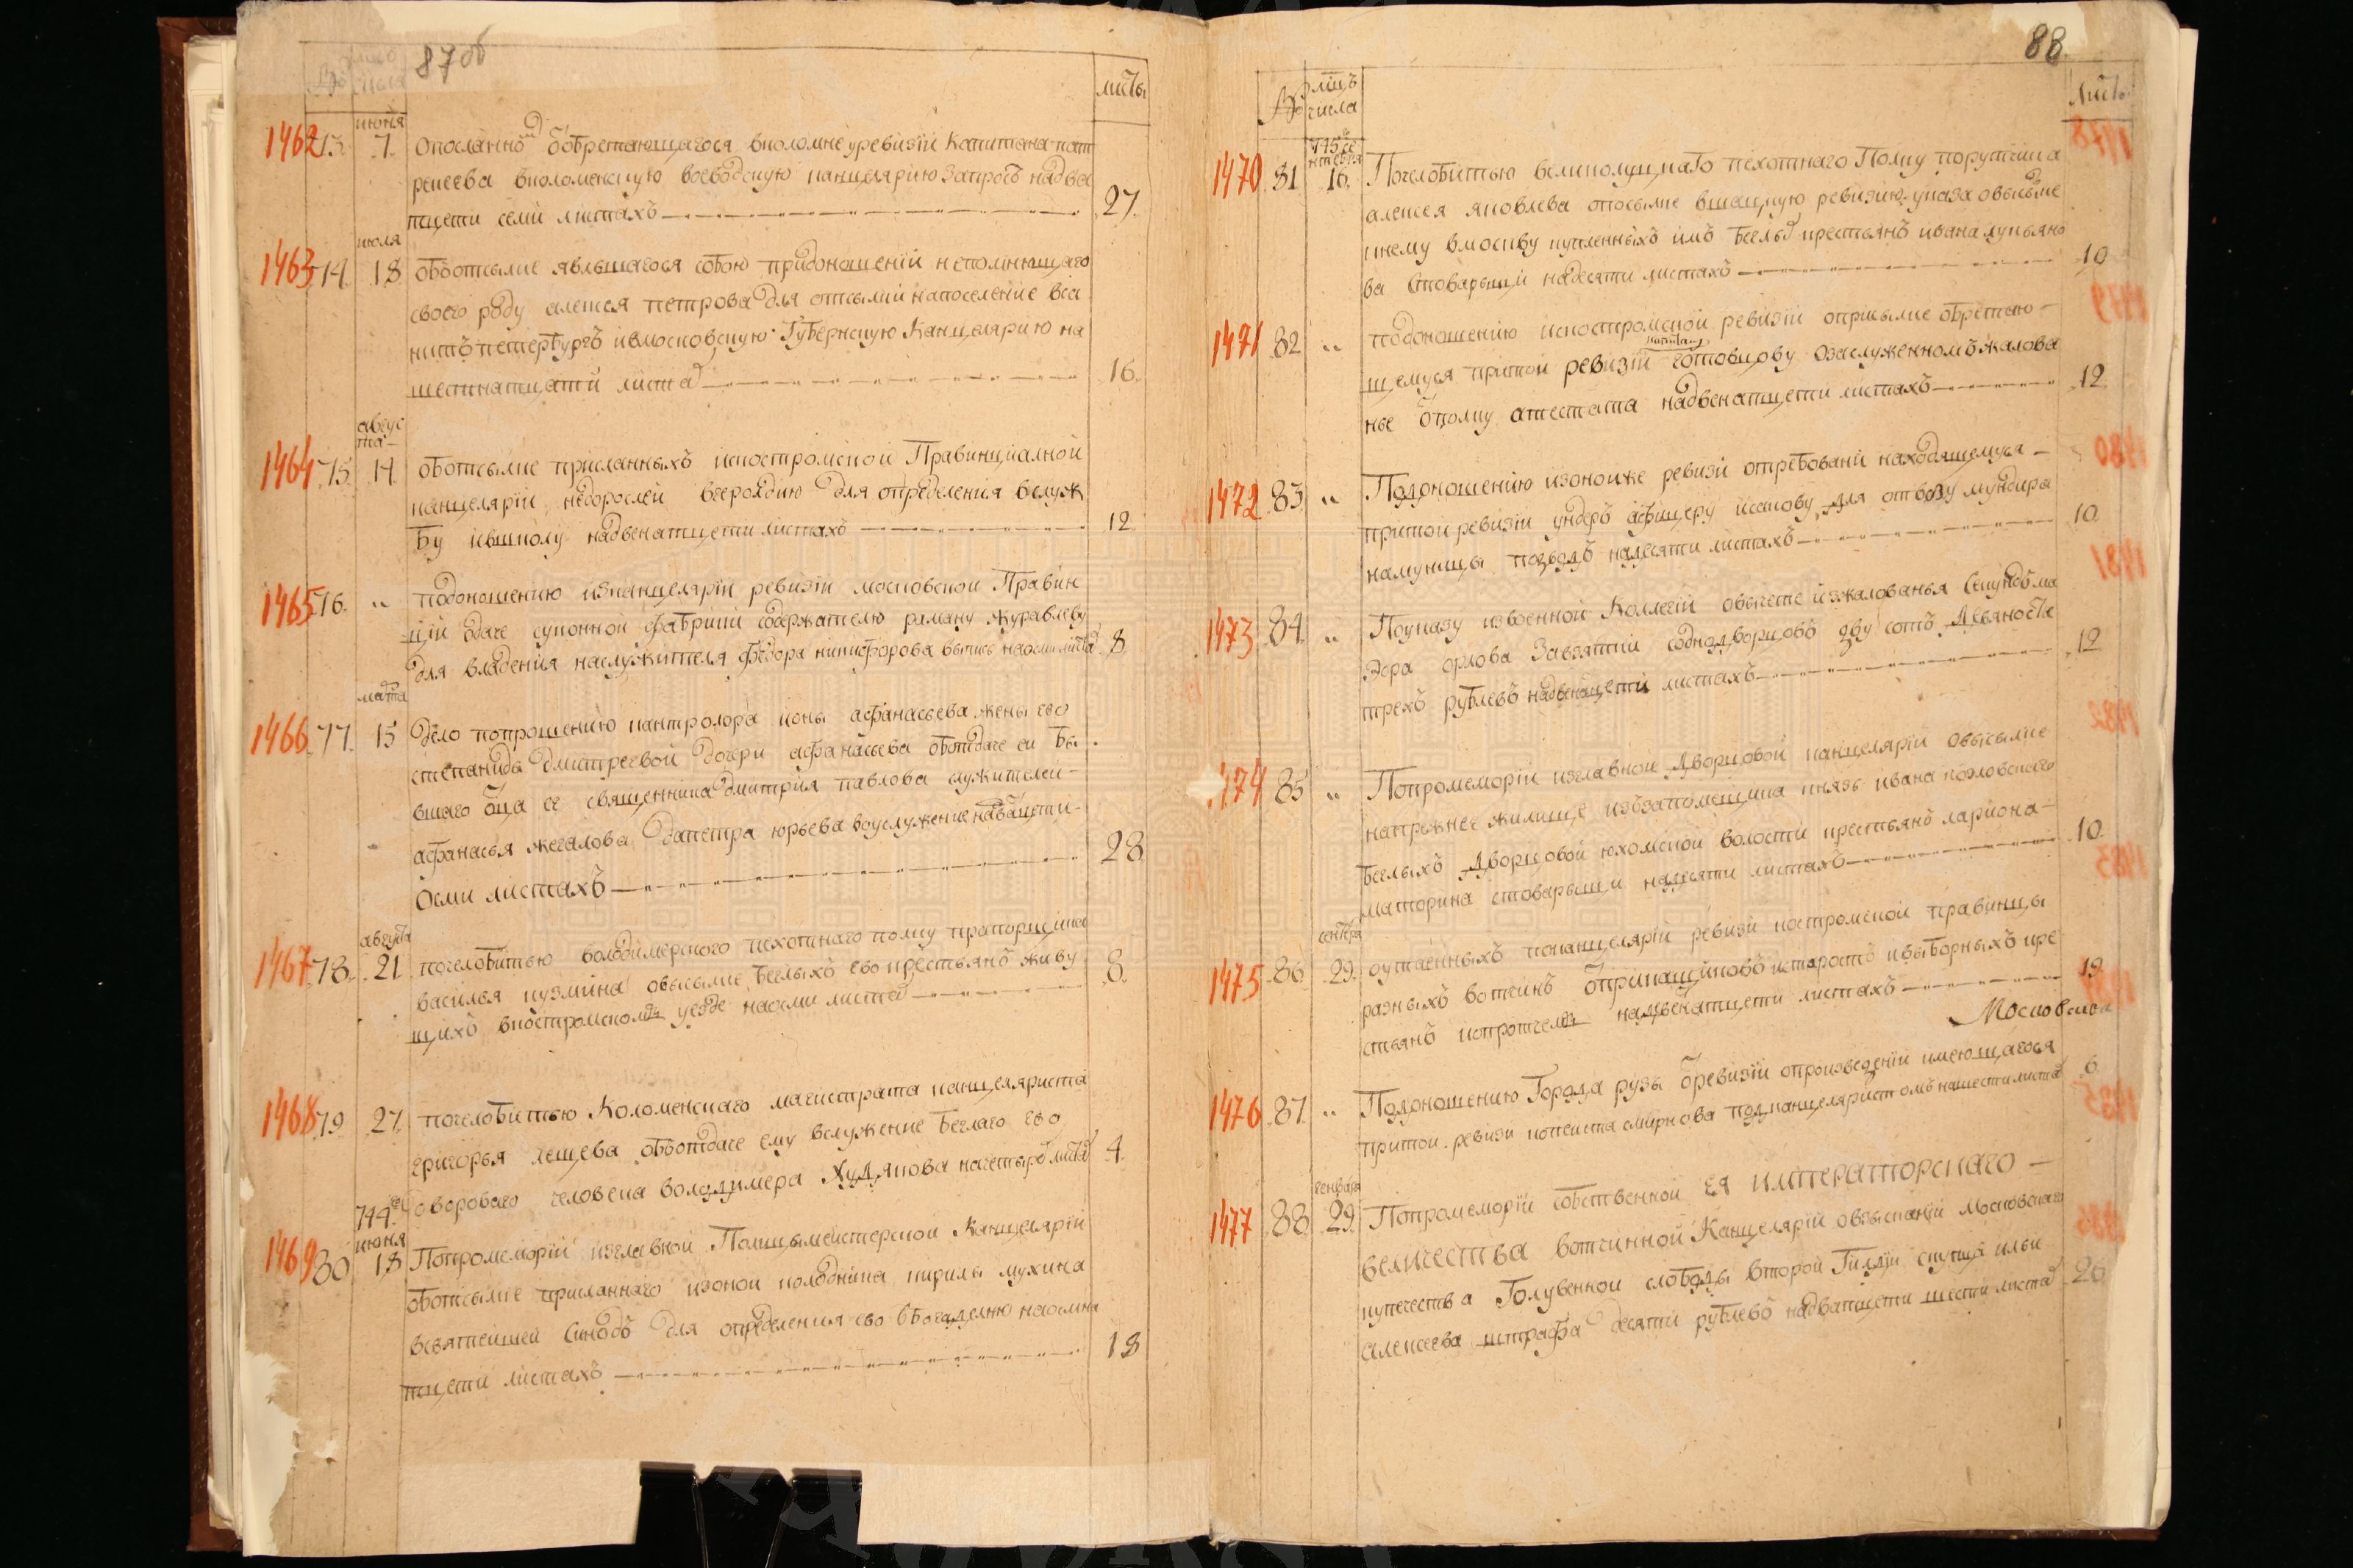 87об
листы
июня
1462 73. 7. опосланно от обретающагося вколомне уревизiи Капитана пат
рекеева вколоменскую воеводскую канцелярию Запросъ надва
тцети семи листахъ 27.
июля
1463 74. 18 оботсылке явльшагося собою придоношенiи непомнющаго
своего роду алексея петрова для отсылки напоселение вса
нктъпетербургъ ивмосковскую Губернскую Канцелярию на
шестнатцати листах 16.
авгус
та
1464 75. 14 оботсылке присланныхъ искостромской Правинциалной
канцелярiи недорослей вгерольдию для определения вслуж
бу ившколу надвенатцети листахъ 12
1465 76. " подоношению изканцелярiи ревизiи московской Правин
цiи одаче суконной фабрики содержателю роману журавлеву
для владения наслужителя федора никифорова выпись наосми листах 8
марта
1466 77. 15 дело попрошению кантролора ионы афанасьева жены ево
степаниды дмитреевой дочери афанасьева оботдаче ей бы
вшаго отца ее священника дмитрия павлова служителей
афанасья жегалова дапетра юрьева воуслужение надватцети
осми листахъ 28
августа
1467 78. 21 почелобитью володимерского пехотнаго полку прапорщика
василья кузмина овысылке беглыхъ ево крестьянъ живу
щихъ вкостромском уезде наосми листах 8.
1468 79 27 почелобитью Коломенскаго магистрата канцеляриста
григорья лещева оботдаче ему вслужение беглаго ево
дворового человека володимера Худякова начетырех листах 4.
744 году
июня
1469 80 18 Попромеморiи изглавной Полицымейстерской Канцелярiи
оботсылке присланнаго изоной колодника кирилы мухина
всвятейшей Синодъ для определения ево вбогаделню наосмна
тцети листахъ 18
88
№ мцъ
числа
листы
745 се
нтября
1470 81 16. Почелобитью великолуцкаго пехотнаго Полку порутчика
алексея яковлева опосылке вшацкую ревизию указа овысылке
кнему вмоскву купленныхъ имъ беглых крестьянъ ивана лукьяно
ва стоварыщи надесяти листахъ 10
1471 82 " подоношению искостромской ревизiи оприсылке обретаю
щемуся притой ревизiи капитану готовцову озаслуженномъ жалова
нье отполку атестата надвенатцети листахъ 12
1472 83. " Подоношению изоноиже ревизи отребовани находящемуся
притой ревизiи ундеръ афицеру исакову для отвозу мундира
намуницы подводъ надесяти листахъ 10
1473 84. " Поуказу извоенной Коллегiи овычете изжалованья Секундъ ма
эора орлова Завзятки содводворцовъ дву сотъ Девяноста
трехъ рублевъ надвенатцети листахъ 12
1474 85 " Попромеморiи изглавной Дворцовой канцелярiи овысылке
напрежнее жилище изъзапомещика князь ивана козловскаго
беглыхъ Дворцовой юхомской волости крестьянъ лариона
маторина стоварыщи надесяти листахъ 10.
сентября
1475 86 29. оутаенныхъ поканцелярiи ревизи костромской правинцы
разныхъ вотчинъ отприкащиковъ истаростъ ивыборныхъ кре
стьянъ ипротчем надвенатцети листахъ 12
Московская
1476 87. " Подоношению Города рузы отревизiи опроизведенiи имеющагося
притой ревизи копеиста смирнова подканцеляристомъ нашести листах 6.
генваря
1477 88 29. Попромеморiи собственной ея императорскаго
величества вотчинной Канцелярiи овзысканiи Московскаго
купечества Голувенной слободы второй Гилдiи скупца ильи
алексеева штрафа десяти рублевъ надватцети шести листах 26